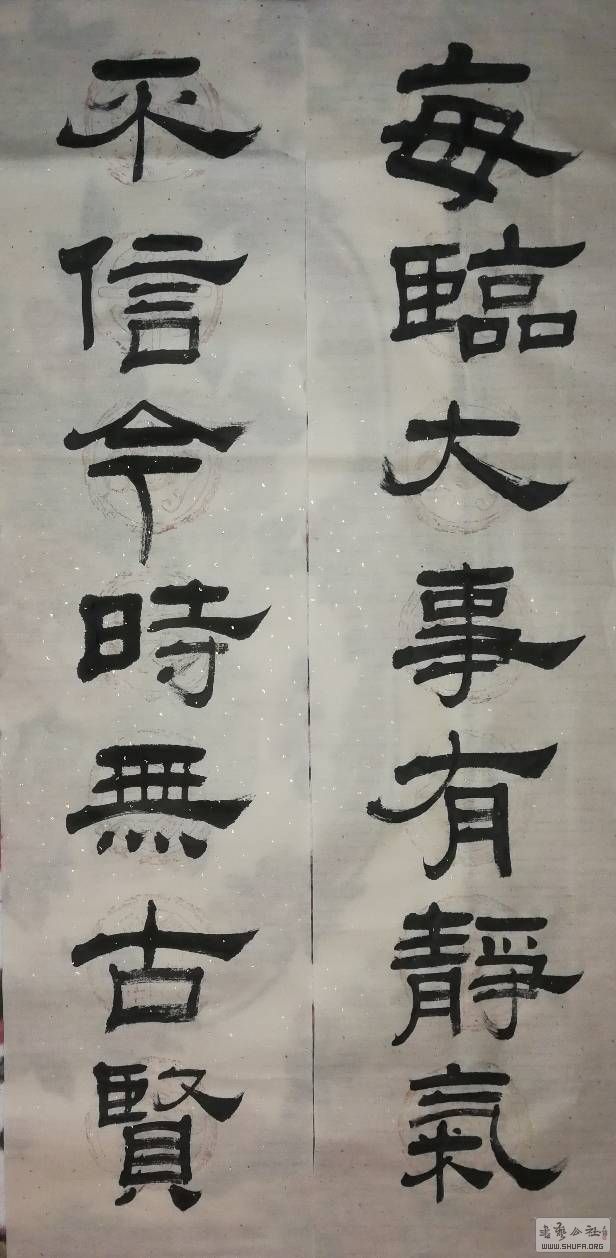 每臨大事有靜氣
不信今時無古賢
WWW.SHUFA.ORG